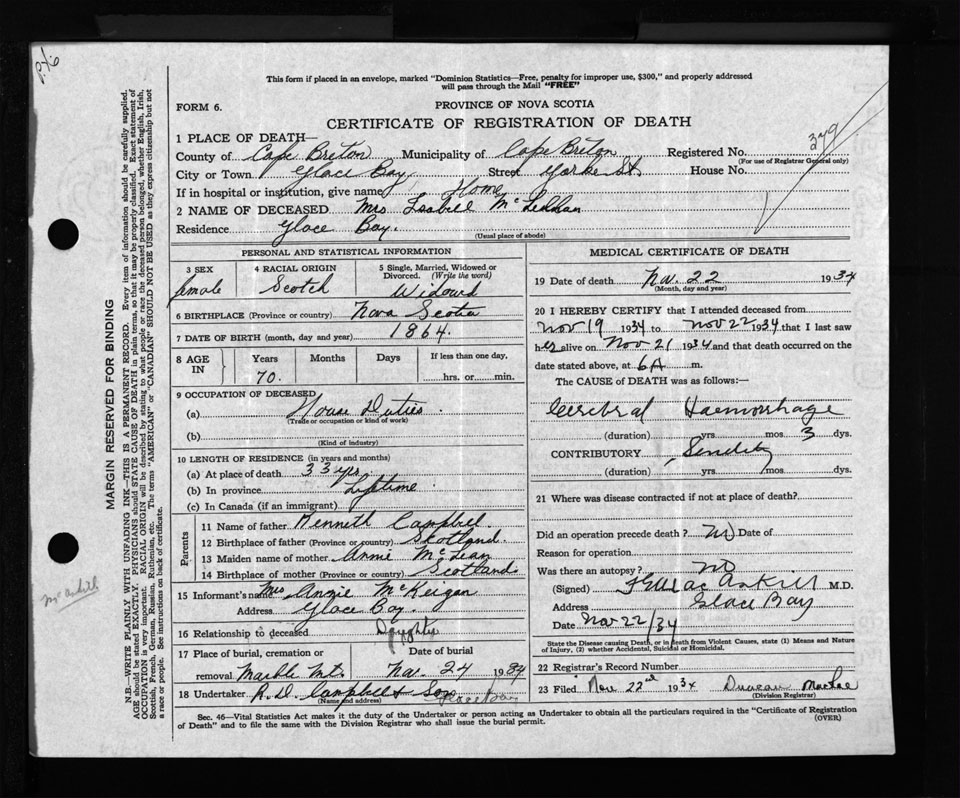 P46
This form if placed in an envelope, marked "Dominion Statistics—Free, penalty for improper use, $300," and properly addressed
will pass through the Mail "FREE"
FORM 6.
PROVINCE OF NOVA SCOTIA
CERTIFICATE OF REGISTRATION OF DEATH
379
1 PLACE OF DEATH—
County of Cape Breton Municipality of Cape Breton Registered No.
(For use of Registrar General only)
City or Town Glace Bay Street Yorke St House No.
If in hospital or institution, give name Home
2 NAME OF DECEASED Mrs Isabell McLellan
Residence Glace Bay.
(Usual place of abode)
PERSONAL AND STATISTICAL INFORMATION
3 SEX 4 RACIAL ORIGIN 5 Single, Married, Widowed or Divorced. (Write the word)
female Scotch Widowed
6 BIRTHPLACE (Province or country) Nova Scotia
7 DATE OF BIRTH (month, day and year) 1864.
8 AGE IN Years Months Days If less than one day,
70. hrs. or min.
9 OCCUPATION OF DECEASED
(a) House Duties.
(Trade or occupation or kind of work)
(b)
(Kind of industry)
10 LENGTH OF RESIDENCE (in years and months)
(a) At place of death 33 yrs.
(b) In province Lifetime
(c) In Canada (if an immigrant)
Parents
11 Name of father Kenneth Campbell
12 Birthplace of father (Province or country) Skotland.
13 Maiden name of mother Annie McLean
14 Birthplace of mother (Province or country) Scotland
15 Informant's name Mrs Annie McKeigan
Address Glace Bay.
16 Relationship to deceased Daughter
17 Place of burial, cremation or removal. Date of burial
Marble Mt. Nov. 24 1934
18 Undertaker R. D. Campbell & Son Glace Bay
(Name and address)
MEDICAL CERTIFICATE OF DEATH
19 Date of death Nov. 22 1934
(Month, day and year)
20 I HEREBY CERTIFY that I attended deceased from
Nov 19 1934 to Nov 22 1934 that I last saw
her alive on Nov 21 1934 and that death occurred on the
date stated above, at 6 A m.
The CAUSE OF DEATH was as follows:—
Cerebral Haemorrhage
(duration) yrs mos 3 dys.
CONTRIBUTORY Senility
(duration) yrs mos dys.
21 Where was disease contracted if not at place of death?
Did an operation precede death? No Date of
Reason for operation
Was there an autopsy? no
(Signed) M.D.
Address Glace Bay
Date Nov 22/34
State the Disease causing Death, or in death from Violent Causes, state (1) Means and Nature
of Injury, (2) whether Accidental, Suicidal or Homicidal.
22 Registrar's Record Number
23 Filed Nov 22nd 1934 Duncan MacRae
(Division Registrar)
Sec. 46—Vital Statistics Act makes it the duty of the Undertaker or person acting as Undertaker to obtain all the particulars required in the "Certificate of Registration
of Death" and to file the same with the Division Registrar who shall issue the burial permit.
(OVER)
MARGIN RESERVED FOR BINDING
N.B.—WRITE PLAINLY WITH UNFADING INK—THIS IS A PERMANENT RECORD. Every item of information should be carefully supplied.
AGE should be stated EXACTLY. PHYSICIANS should STATE CAUSE OF DEATH in plain terms, so that it may be properly classified. Exact statement of
OCCUPATION is very important. RACIAL ORIGIN will be described by stating to what people or race the deceased person belonged, whether English, Irish,
Scottish, French, German, Russian, Ruthenian, etc. The terms "AMERICAN" or "CANADIAN" SHOULD NOT BE USED as they express citizenship but not
a race or people. See instructions on back of certificate.